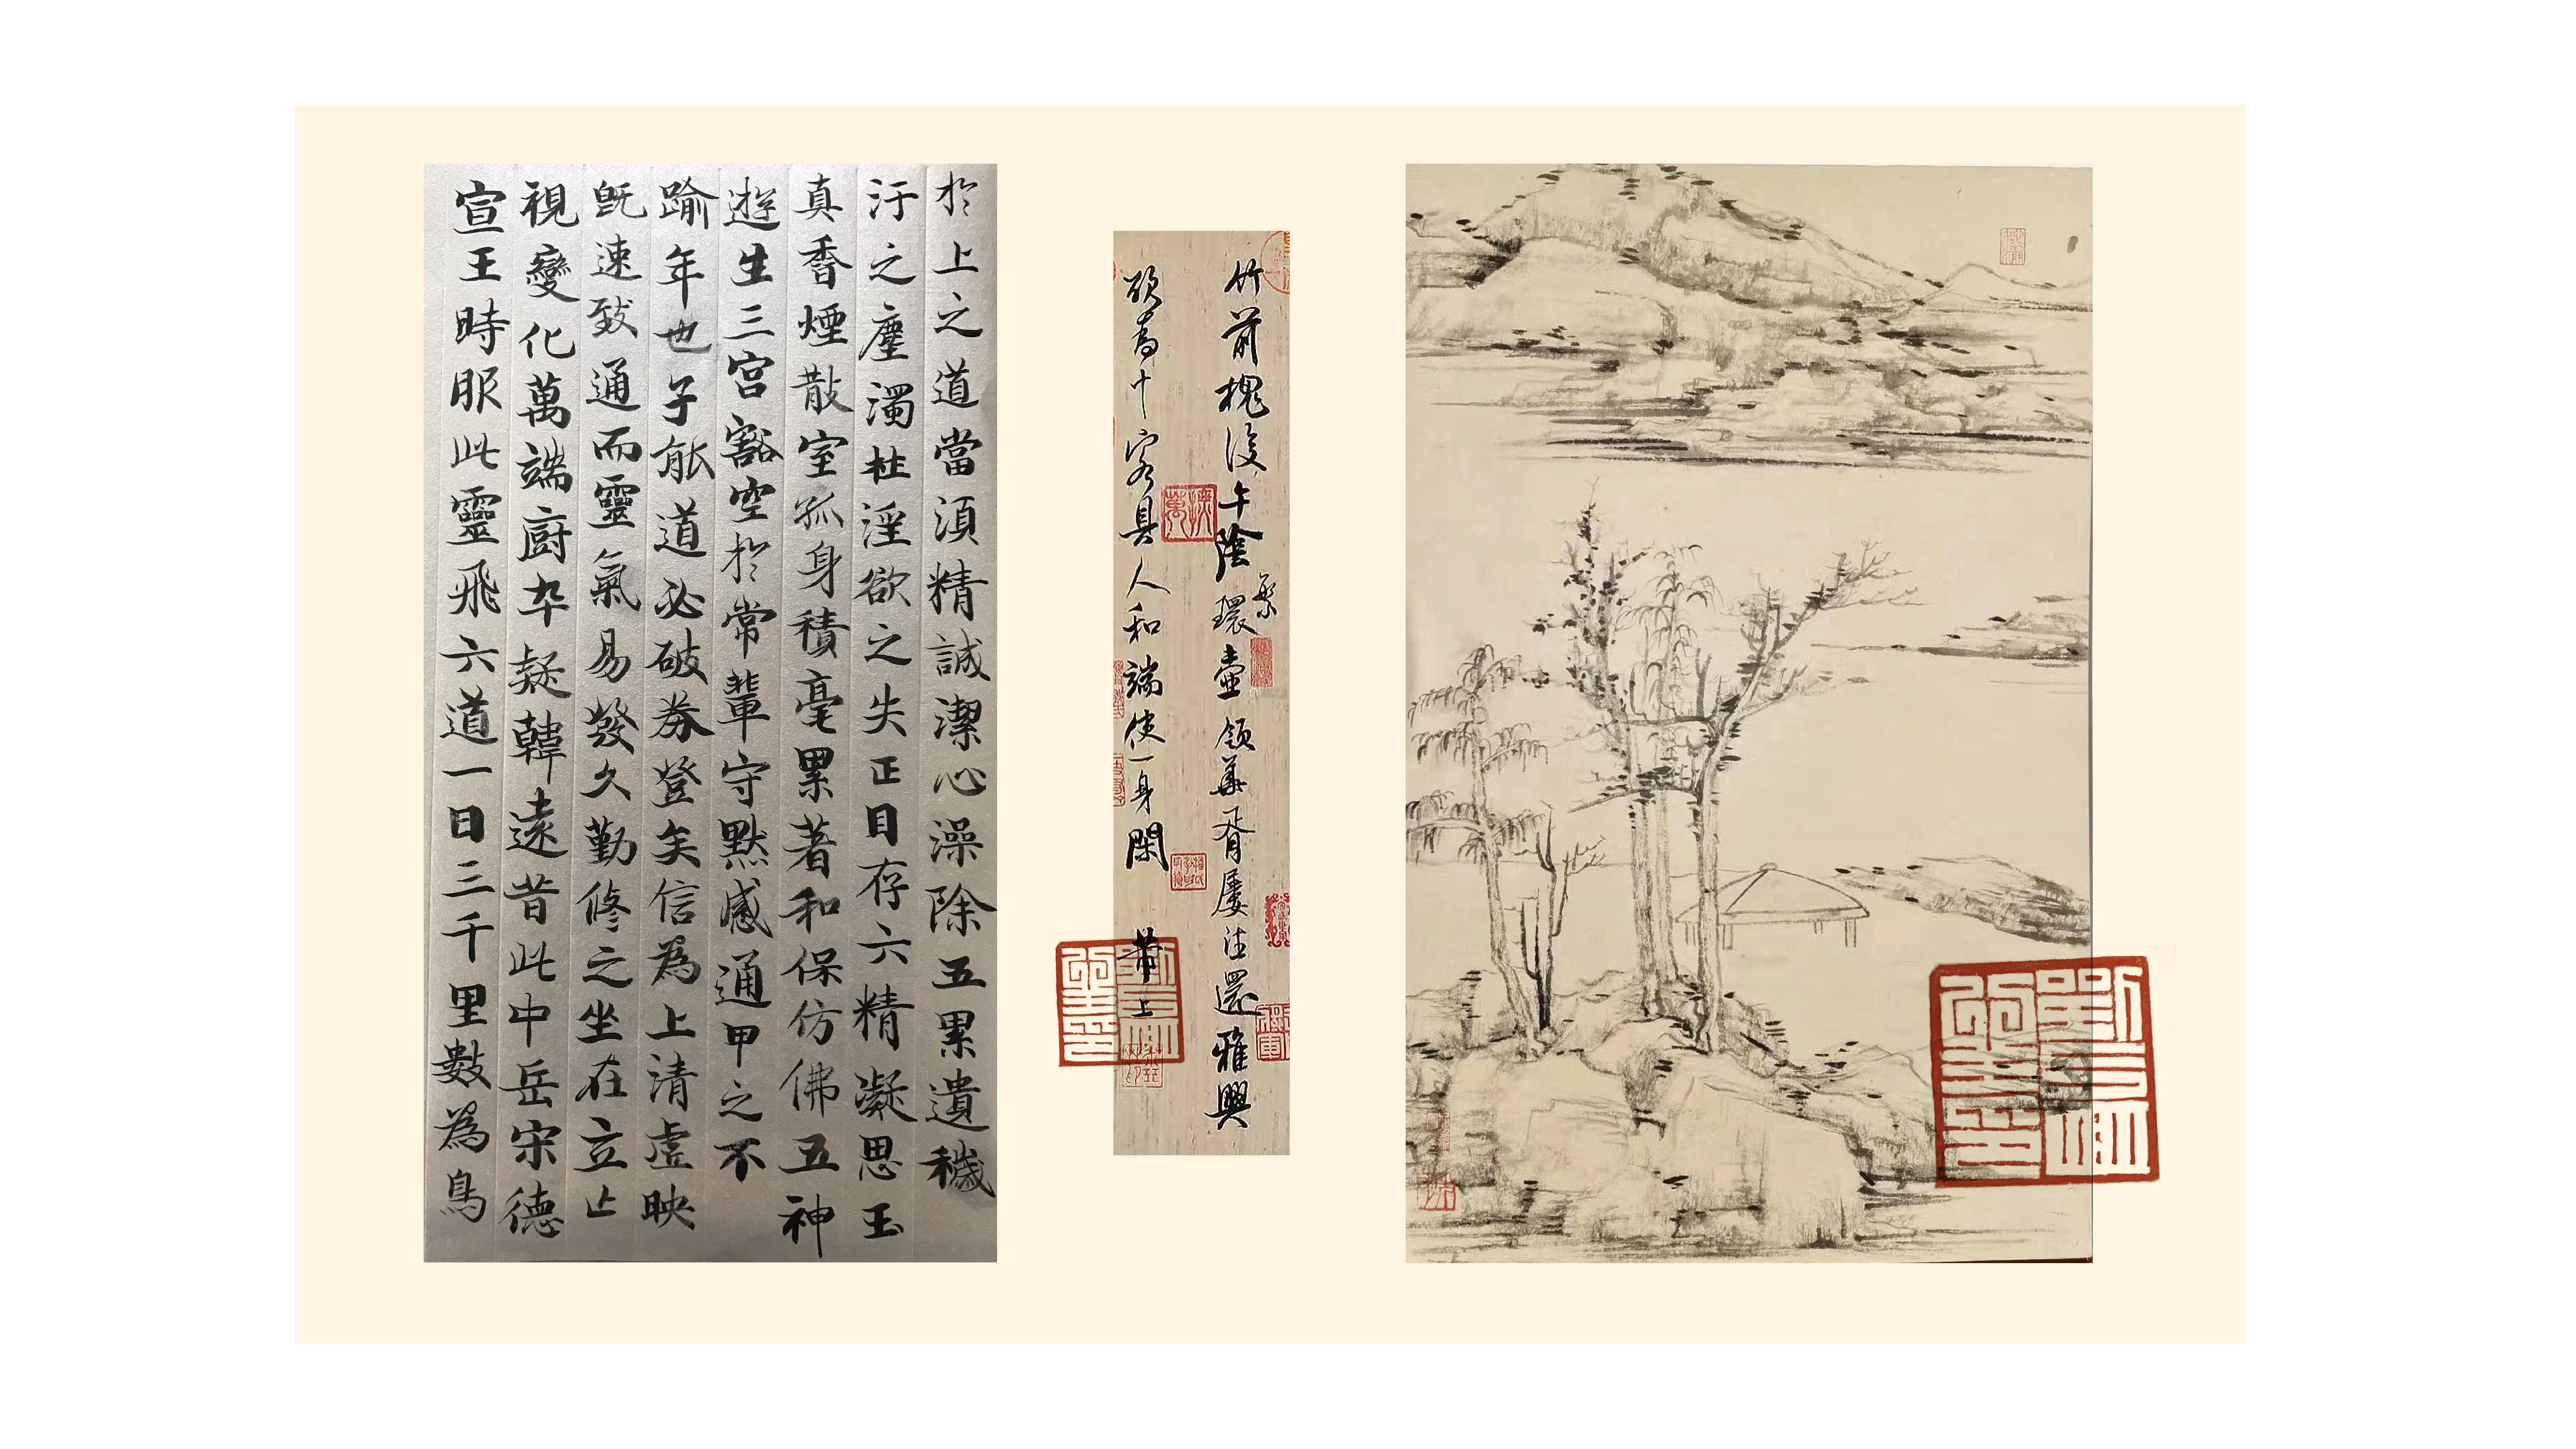 於上之道當須精誠潔心澡除五累遺穢
汙之塵濁杜淫欲之失正目存六精凝思玉
真香煙散室孤身積毫累著和保仿佛五神
遊生三宮豁空於常輩守默感通甲之不
踰年也子能道必破券登矣信為上清虛映
既速致通而靈氣易發久勤修之坐在立亡
視變化萬端廚卒疑韓遠昔此中岳宋德
宣王時服此靈飛六道一日三千里數為鳥
竹前槐後午陰繁環壺領華胥屢往還雅興
欲為十客具人和端使一身閑 芾上